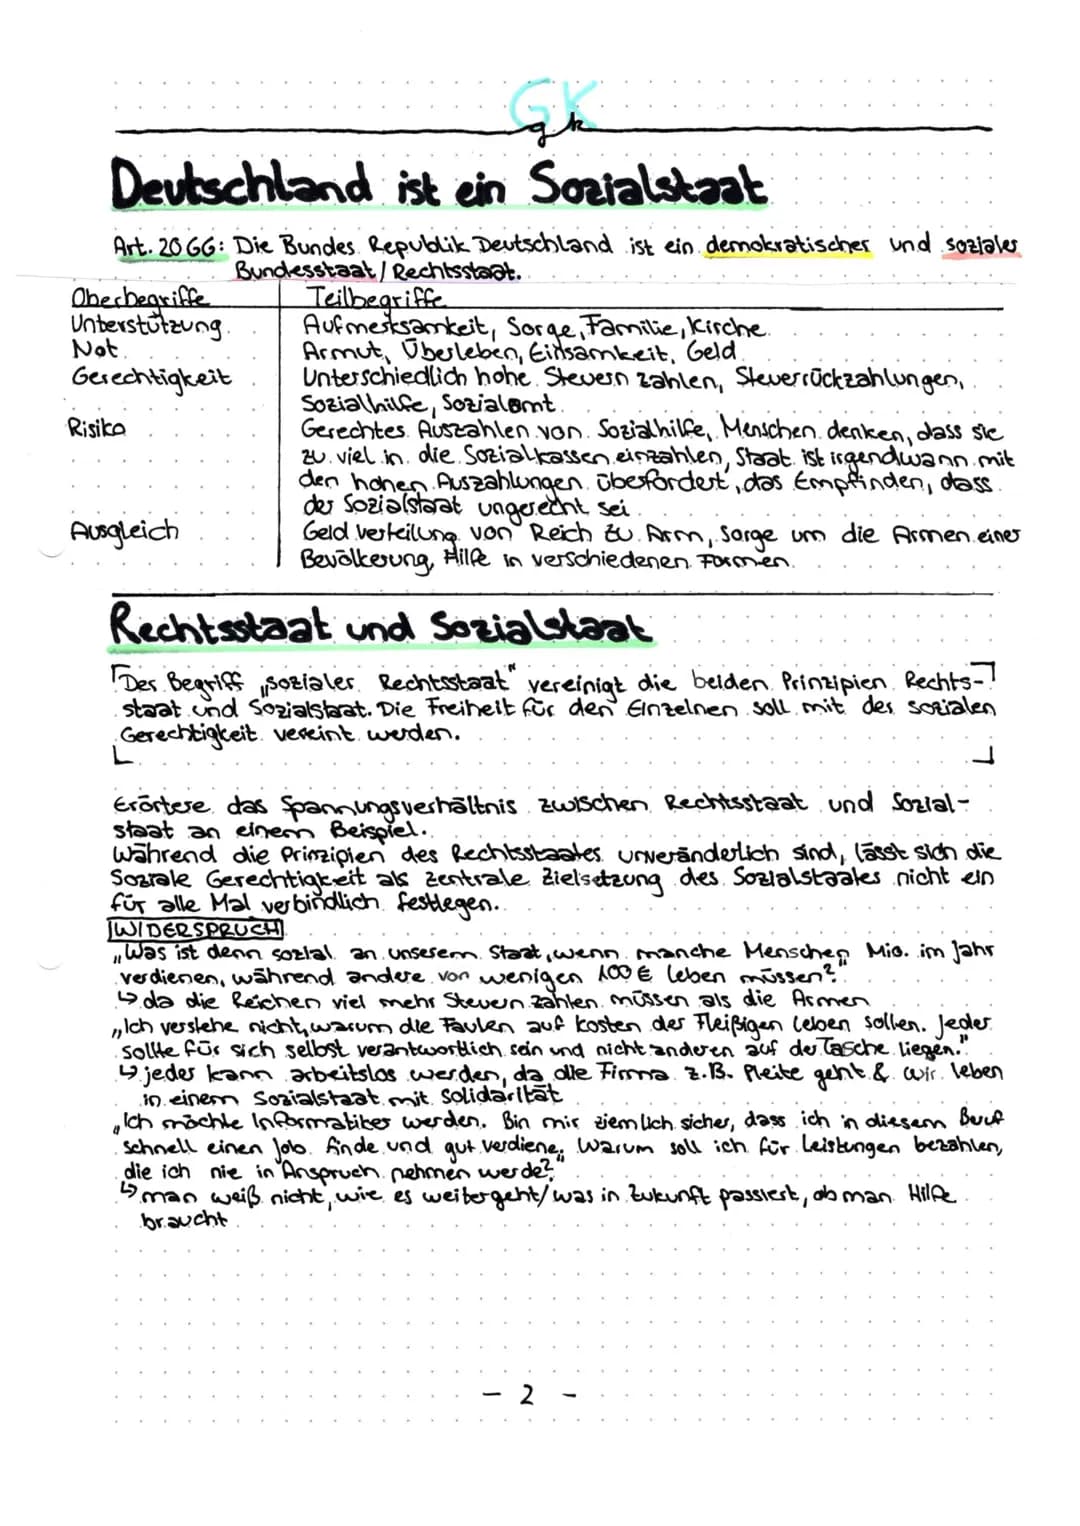 GK
gk
Deutschland ist ein Sozialstaat
Art. 20 GG: Die Bundes Republik Deutschland ist ein demokratischer und sozialer
Bundesstaat / Rechtsstaat.
Oberbegriffe Teilbegriffe
Unterstützung Aufmerksamkeit, Sorge, Familie, Kirche
Not Armut, Überleben, Einsamkeit, Geld
Gerechtigkeit Unterschiedlich hohe Steuern zahlen, Steuerrückzahlungen,
Sozialhilfe, Sozialamt
Risiko Gerechtes Auszahlen von Sozialhilfe, Menschen denken, dass sie
zu viel in die Sozialkassen einzahlen, Staat ist irgendwann mit
den hohen Auszahlungen überfordert, das Empfinden, dass
der Sozialstaat ungerecht sei
Ausgleich Geld verteilung von Reich zu Arm, Sorge um die Armen einer
Bevölkerung, Hilfe in verschiedenen Formen
Rechtsstaat und Sozialstaat
Der Begriff „sozialer Rechtsstaat" vereinigt die beiden Prinzipien Rechts-
staat und Sozialstaat. Die Freiheit für den Einzelnen soll mit der sozialen
Gerechtigkeit vereint werden.
Erörtere das Spannungsverhältnis zwischen Rechtsstaat und Sozial-
staat an einem Beispiel.
Während die Prinzipien des Rechtsstaates unveränderlich sind, lässt sich die
Soziale Gerechtigkeit als zentrale Zielsetzung des Sozialstaates nicht ein
für alle Mal verbindlich festlegen.
WIDERSPRUCH
„Was ist denn sozial an unserem Staat, wenn manche Menschen Mio. im Jahr
verdienen, während andere von wenigen 100 € leben müssen?"
↳ da die Reichen viel mehr Steuern zahlen müssen als die Armen
„Ich verstehe nicht, warum die Faulen auf kosten der Fleißigen leben sollen. Jeder
sollte für sich selbst verantwortlich sein und nicht anderen auf der Tasche liegen."
↳ jeder kann arbeitslos werden, da die Firma z.B. Pleite geht & wir leben
in einem Sozialstaat mit Solidarität
„Ich möchte Informatiker werden. Bin mir ziemlich sicher, dass ich in diesem Beruf
schnell einen Job finde und gut verdiene. Warum soll ich für Leistungen bezahlen,
die ich nie in Anspruch nehmen werde?"
↳ man weiß nicht, wie es weitergeht/was in Zukunft passiert, ob man Hilfe
braucht
- 2 -